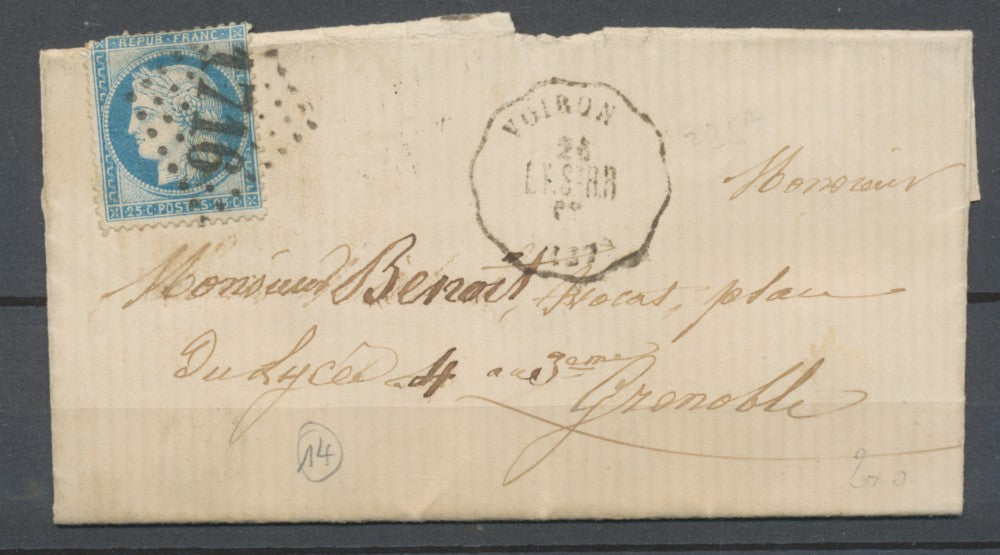 REPUB · FRANC ·
25 C · POSTES · 25 C
VOIRON
(137)
Monsieur
Monsieur Benoit, Avocat, place
Du Lycée 4 au 3eme
Grenoble
14